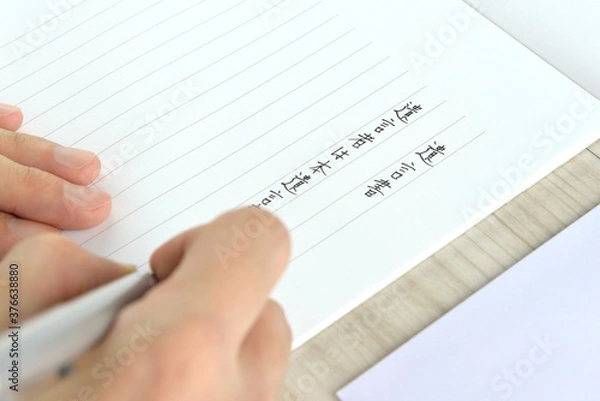 遺言書
遺言者は本遺言
Adobe Stock | #376638880